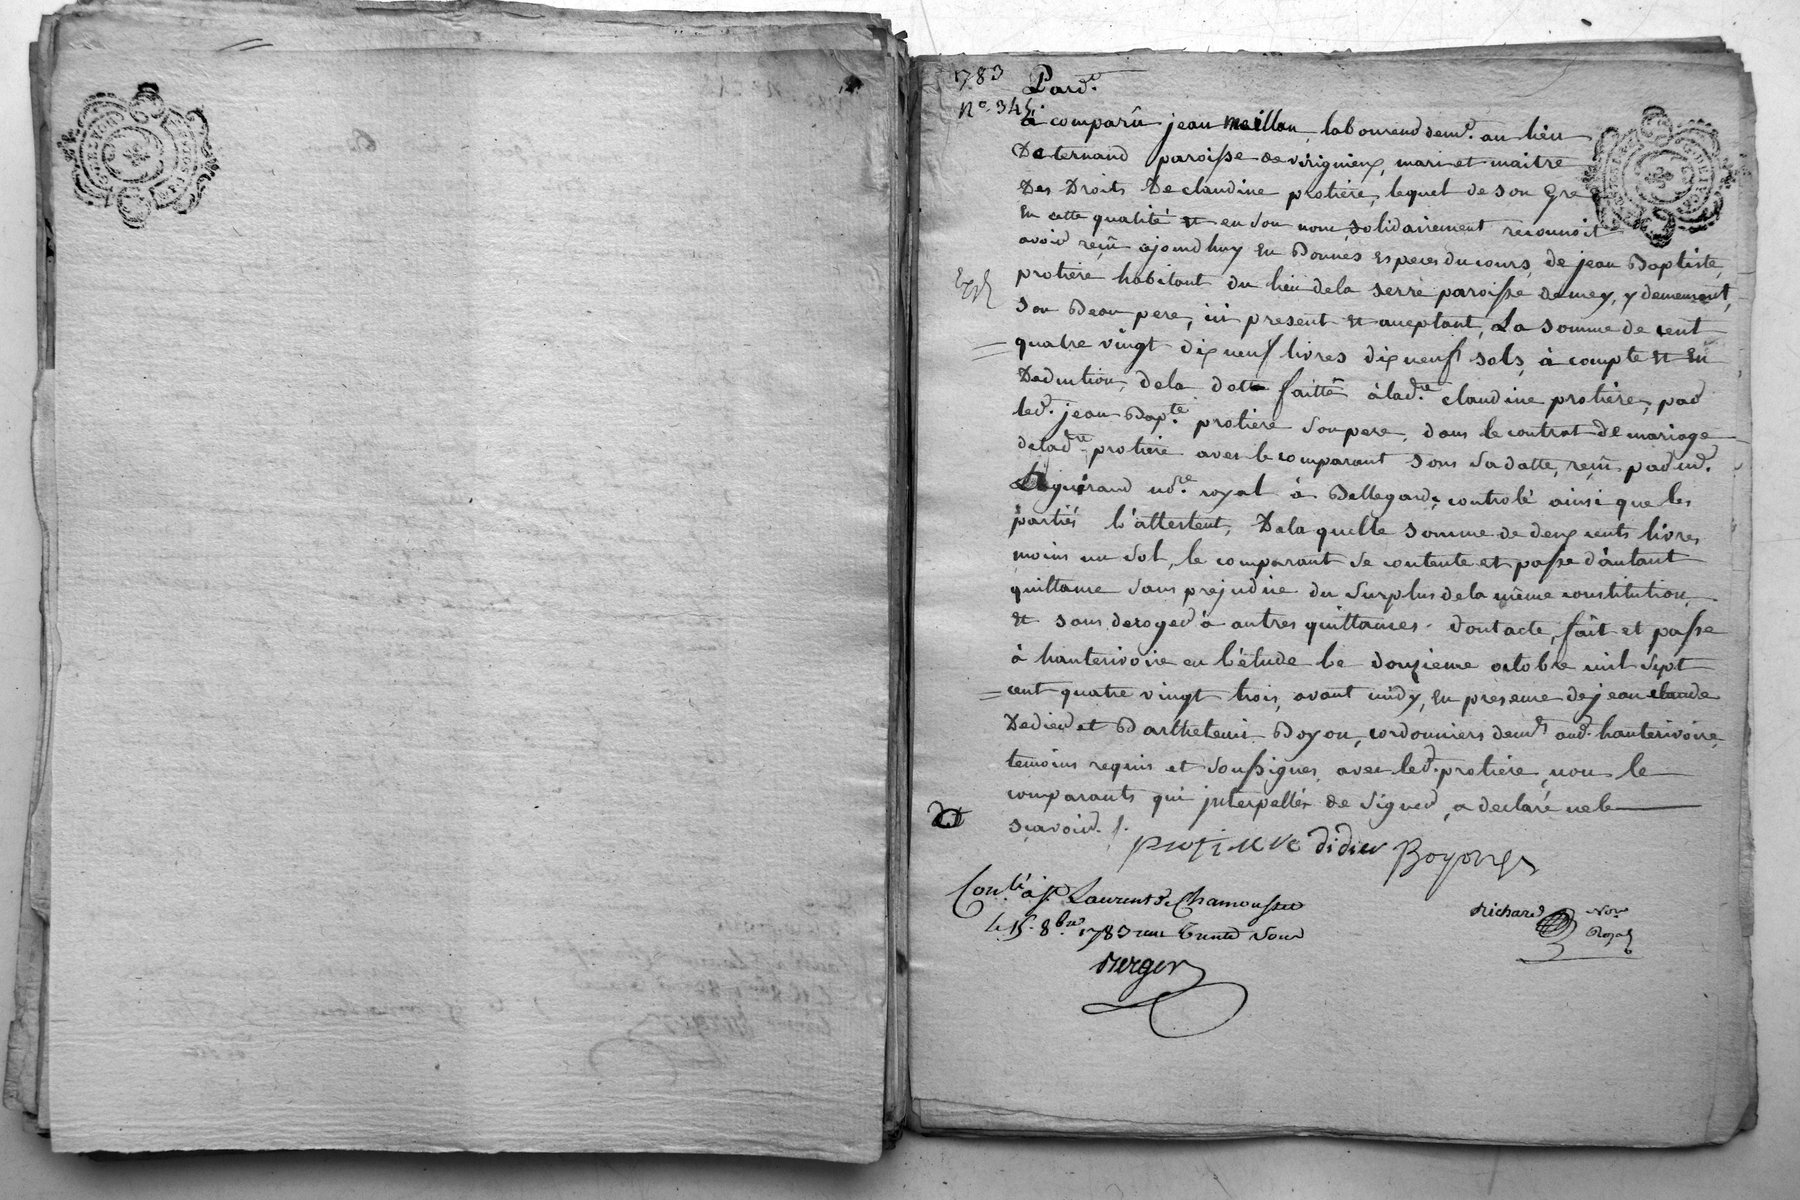 1783
N.° 345.
Pard.t
à comparû jean meillan, laboureur dem.t au lieu
De ternand paroisse de virignieux, mari et maitre
Des Droits De claudine protière, lequel de son Gre
En cette qualité Et en son nom, solidairement reconnoit
avoir reçû ajourdhuy En Bonnes Especes du cours, de jean Baptiste
protière habitant du lieu dela serre paroisse de mey, y demeurant,
son Beau pere, ici present Et acceptant, La somme de cent
quatre vingt dix neuf livres dix neuf sols, à compte Et En
Deduction, dela dotte faitte à lad.te claudine protière, par
led.t jean Bap.te protière son pere, dans le contrat de mariage
de lad.te protière avec le comparant sous sa datte, reçû par m.e
guérand no.re royal à Bellegarde controlé ainsi que les
partiés l'attestent, De la quelle somme de deux cents livres
moins un sol, le comparant se contente et passe d'autant
quittance sans prejudice du surplus de la même constitution
Et sans deroger à autres quittances. dont acte, fait et passe
à hauterivoire en l'étude le douzieme octobre mil sept
cent quatre vingt trois, avant midy, En presence de jean claude
Dedieu et Barthelemi Boyon, cordonniers dem.ts aud. hauterivoire
temoins requis et soussignes, avec led. protière, non le
comparants qui jnterpellés de signer, a declaré ne le
sçavoir ./.
protiere didier Boyon
Con.lé à st Laurent de Chamousset
le 15. 8bre 1783 reçu trente sous
Berger
Richard No.re
Royal